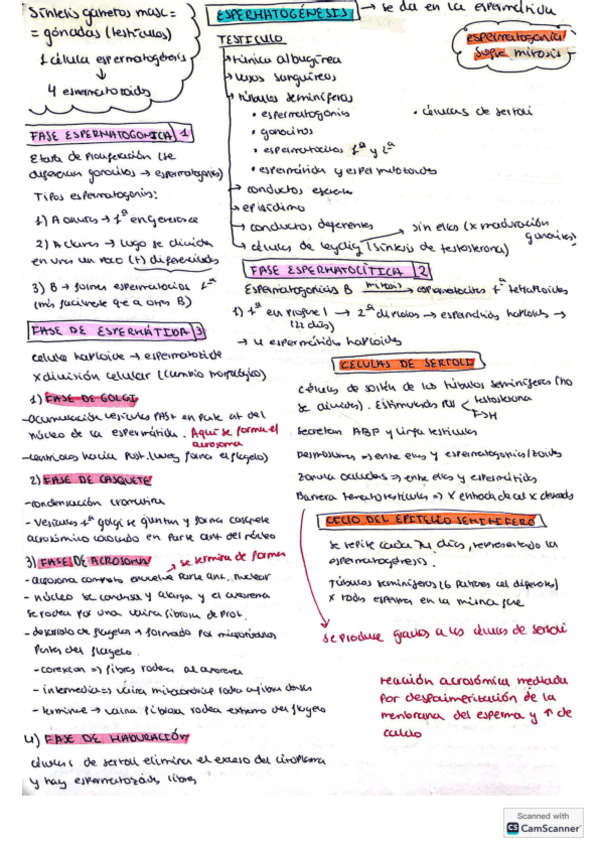 Síntesis gametos masc =
= gónadas (testículos)
1 célula espermatogénesis
↓
4 espermatozoides
ESPERMATOGÉNESIS → se da en la espermátida
espermatogonia
sufre mitosis
TESTICULO
túnica albugínea
vasos sanguíneos
túbulos seminíferos
• espermatogonias
• células de sertoli
• gonocitos
• espermatocitos 1ª y 2ª
• espermátida y espermatozoides
conductos
epidídimo
conductos deferentes
células de leydig (síntesis de testosterona)
sin ellas (x maduración
gametos)
FASE ESPERMATOGONICA 1
Etapa de proliferación (se
diferencian gonocitos → espermatogonias)
Tipos espermatogonias:
1) A oscuras → 1ª en generarse
2) A claras → luego se dividen
en una un poco (+) diferenciadas
3) B → forma espermatocitos 1ª
(más fácilmente que a otras B)
FASE ESPERMATOCÍTICA 2
Espermatogonias B mitosis → espermatocitos 1ª tetraploides
1) 1ª en profase I → 2ª diploides → espermátidas haploides →
(22 días)
→ 4 espermátidas haploides
FASE DE ESPERMÁTIDA 3
célula haploide → espermatozoide
x división celular (cambio morfológico)
1) FASE DE GOLGI
- acumulación vesículas PAS+ en parte ant del
núcleo de la espermátida. Aquí se forma el
acrosoma
- centriolos hacia post. (luego forma el flagelo)
2) FASE DE CASQUETE
- condensación cromatina
- vesículas 1ª golgi se juntan y forma casquete
acrosómico colocado en parte ant del núcleo
3) FASE DE ACROSOMA → se termina de formar
- acrosoma completo envuelve parte ant. nuclear
- núcleo se condensa y alarga y el axonema
se rodea por una vaina fibrosa de prot.
- desarrollo de flagelo → formado por microtúbulos
Partes del flagelo:
- conexión => fibras rodean al axonema
- intermedia => vaina mitocondrial rodea a fibras densas
- terminal → vaina fibrosa rodea extremo del flagelo
4) FASE DE MADURACIÓN
células de sertoli elimina el exceso del citoplasma
y hay espermatozoides libres
CÉLULAS DE SERTOLI
células de sostén de los túbulos seminíferos (no
se dividen). Estimuladas por testosterona
FSH
Secretan ABP y linfa testicular
Desmosomas => entre ellas y espermatogonias
Zonula occludens => entre ellas y espermátidas
Barrera hematotesticular => x
CICLO DEL EPITELIO SEMINIFERO
Se repite cada 74 días, representando la
espermatogénesis.
Túbulos seminíferos (6 patrones cel diferentes)
x todos esperma en la misma fase
se produce gracias a las células de sertoli
reacción acrosómica mediada
por despolimerización de la
membrana del esperma y ↑ de
calcio
Scanned with
CS CamScanner